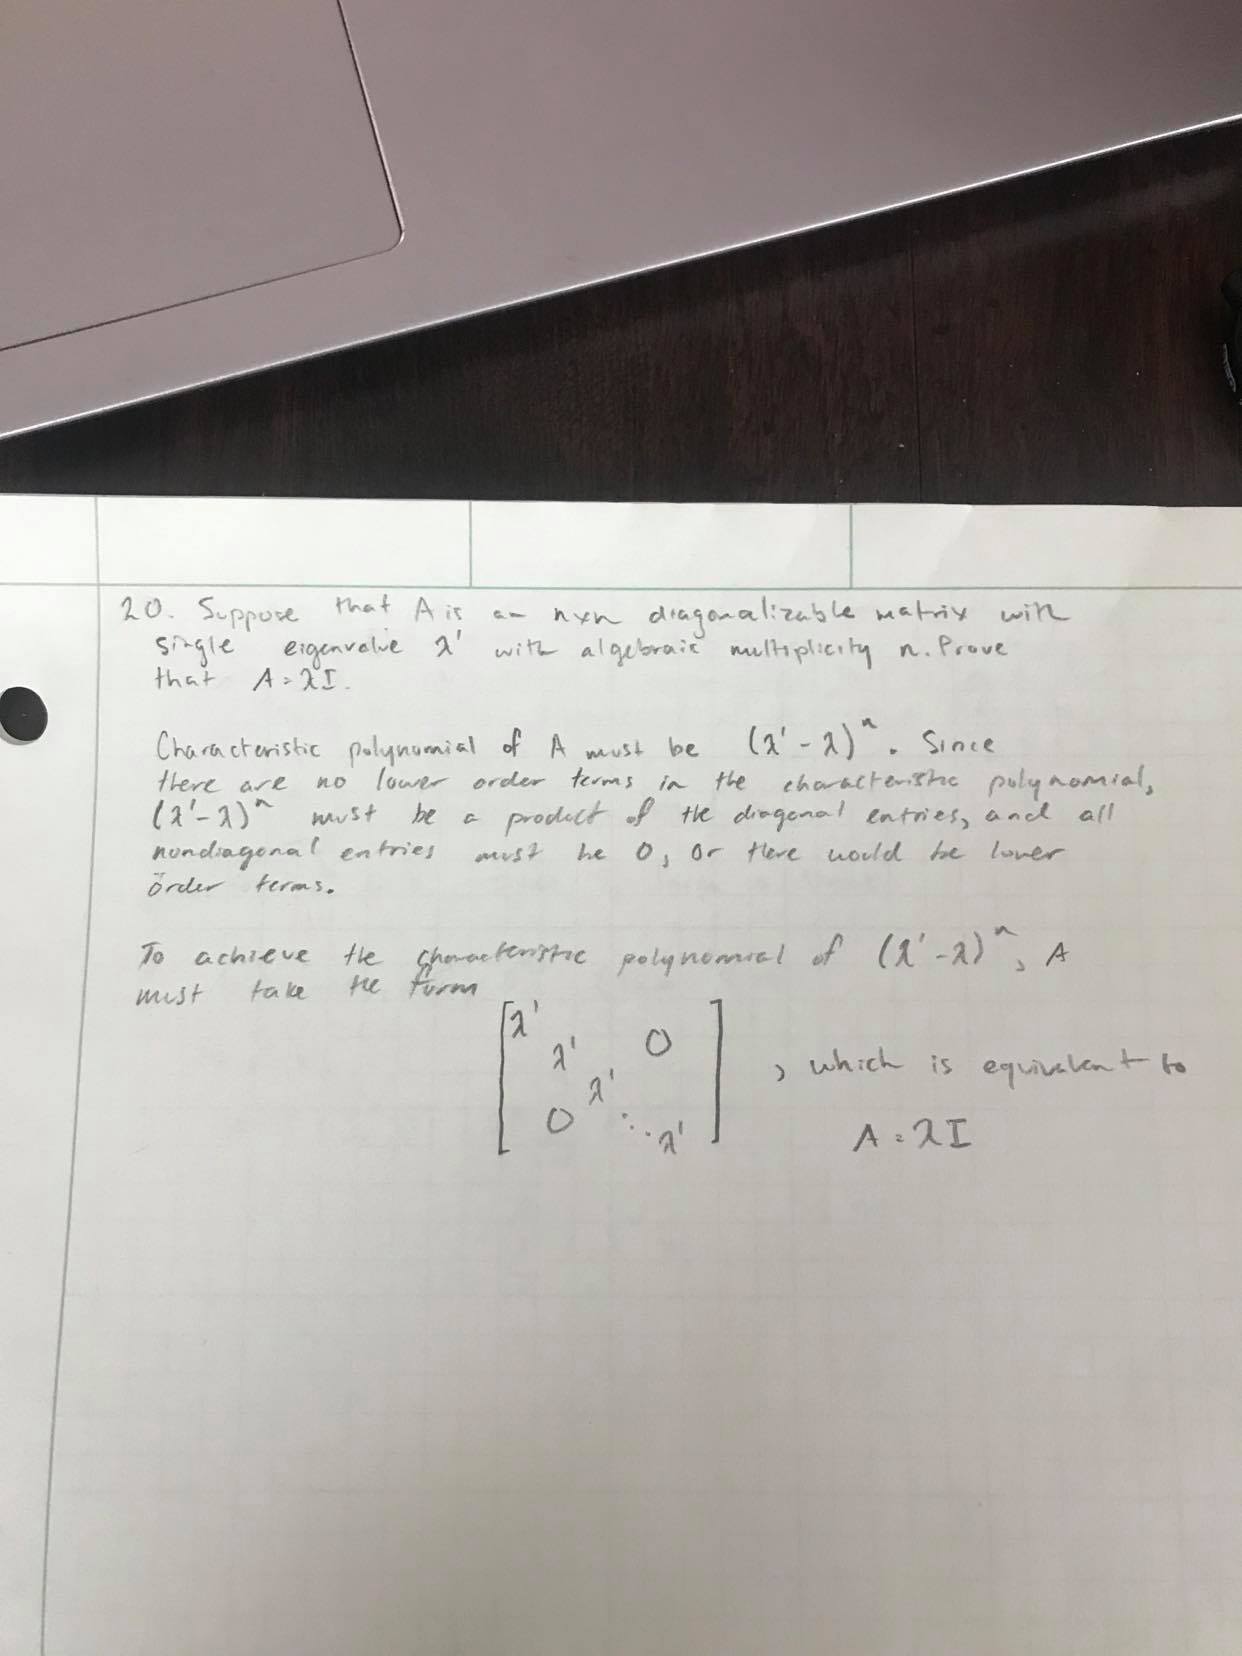 20. Suppose that A is an nxn diagonalizable matrix with
single eigenvalue λ' with algebraic multiplicity n. Prove
that A = λI.
Characteristic polynomial of A must be (λ' - λ)ⁿ. Since
there are no lower order terms in the characteristic polynomial,
(λ' - λ)ⁿ must be a product of the diagonal entries, and all
nondiagonal entries must be 0, or there would be lower
order terms.
To achieve the characteristic polynomial of (λ' - λ)ⁿ, A
must take the form
[λ'
λ' 0
λ'
0 ⋱ λ'] , which is equivalent to
A = λI